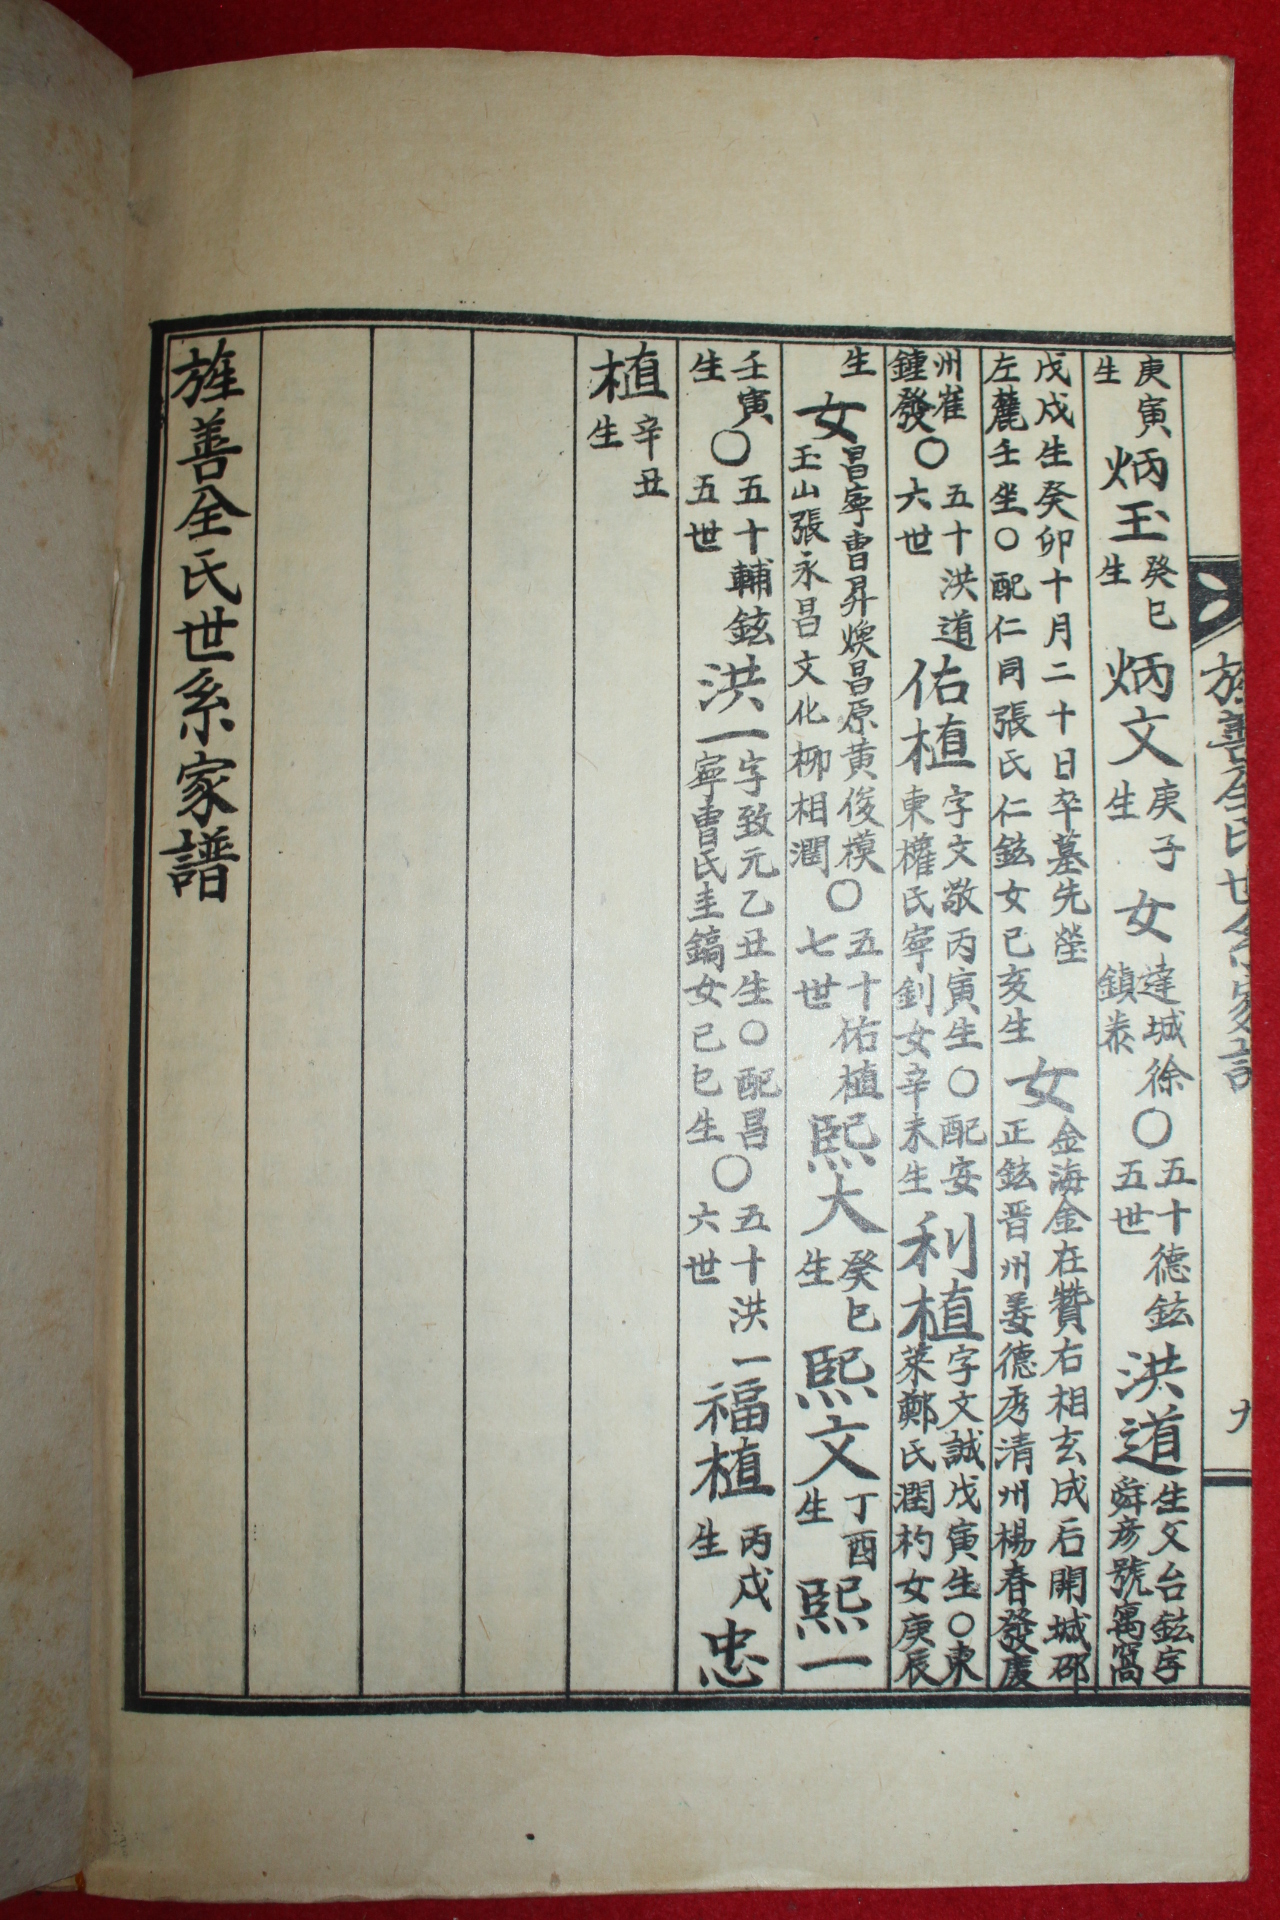 旌善全氏世系家譜
九
庚寅生 炳玉 癸巳生 炳文 庚子生 女 達城徐鎭泰 ○ 五十五世 德鉉 洪道 生父台鉉字舜彦號寓窩
戊戌生癸卯十月二十日卒墓先塋左麓壬坐○配仁同張氏仁鉉女己亥生 女 金海金在贊右相玄成后開城邵正鉉晋州姜德秀清州楊春發慶
州崔鍾發 ○ 五十六世 洪道 佑植 字文敬丙寅生○配安東權氏寧釗女辛未生 利植 字文誠戊寅生○東萊鄭氏潤杓女庚辰
生 女 昌寧曺昇煥昌原黃俊模玉山張永昌文化柳相潤 ○ 五十七世 佑植 熙大 癸巳生 熙文 丁酉生 熙一
壬寅生 ○ 五十五世 輔鉉 洪一 字致元乙丑生○配昌寧曺氏圭鎬女己巳生 ○ 五十六世 洪一 福植 丙戌生 忠
植 辛丑生
旌善全氏世系家譜